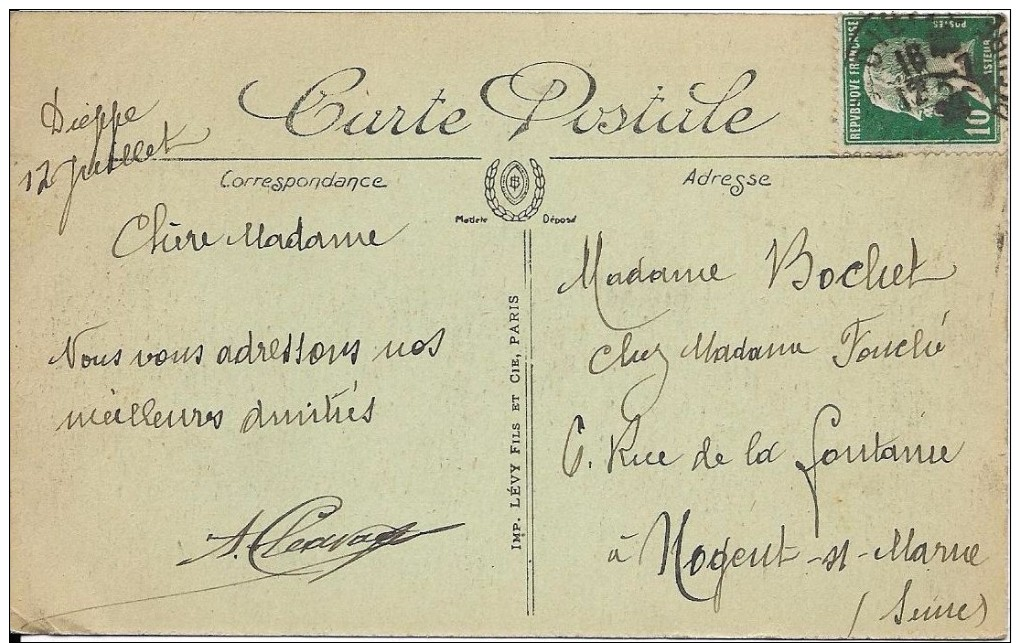 Carte Postale
Dieppe
12 Juillet
Correspondance
Adresse
Modèle Déposé
Chère Madame
Nous vous adressons nos
meilleures amitiés
IMP. LÉVY FILS ET CIE, PARIS
Madame Bochet
Chez Madame Fouché
6. Rue de la Fontaine
à Nogent-s/-Marne
(Seine)
REPVBLIQVE FRANÇAISE
POSTES
PASTEUR
10c